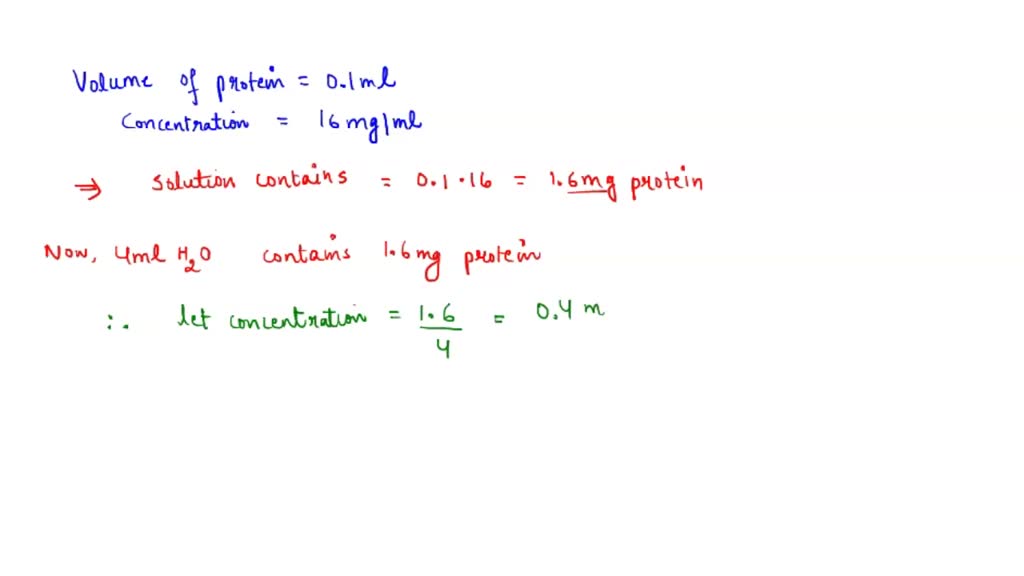 Volume of protein = 0.1ml
Concentration = 16mg/ml
⇒ Solution contains = 0.1·16 = 1.6mg protein
Now, 4ml H₂O contains 1.6mg protein
∴ let concentration = 1.6/4 = 0.4 m